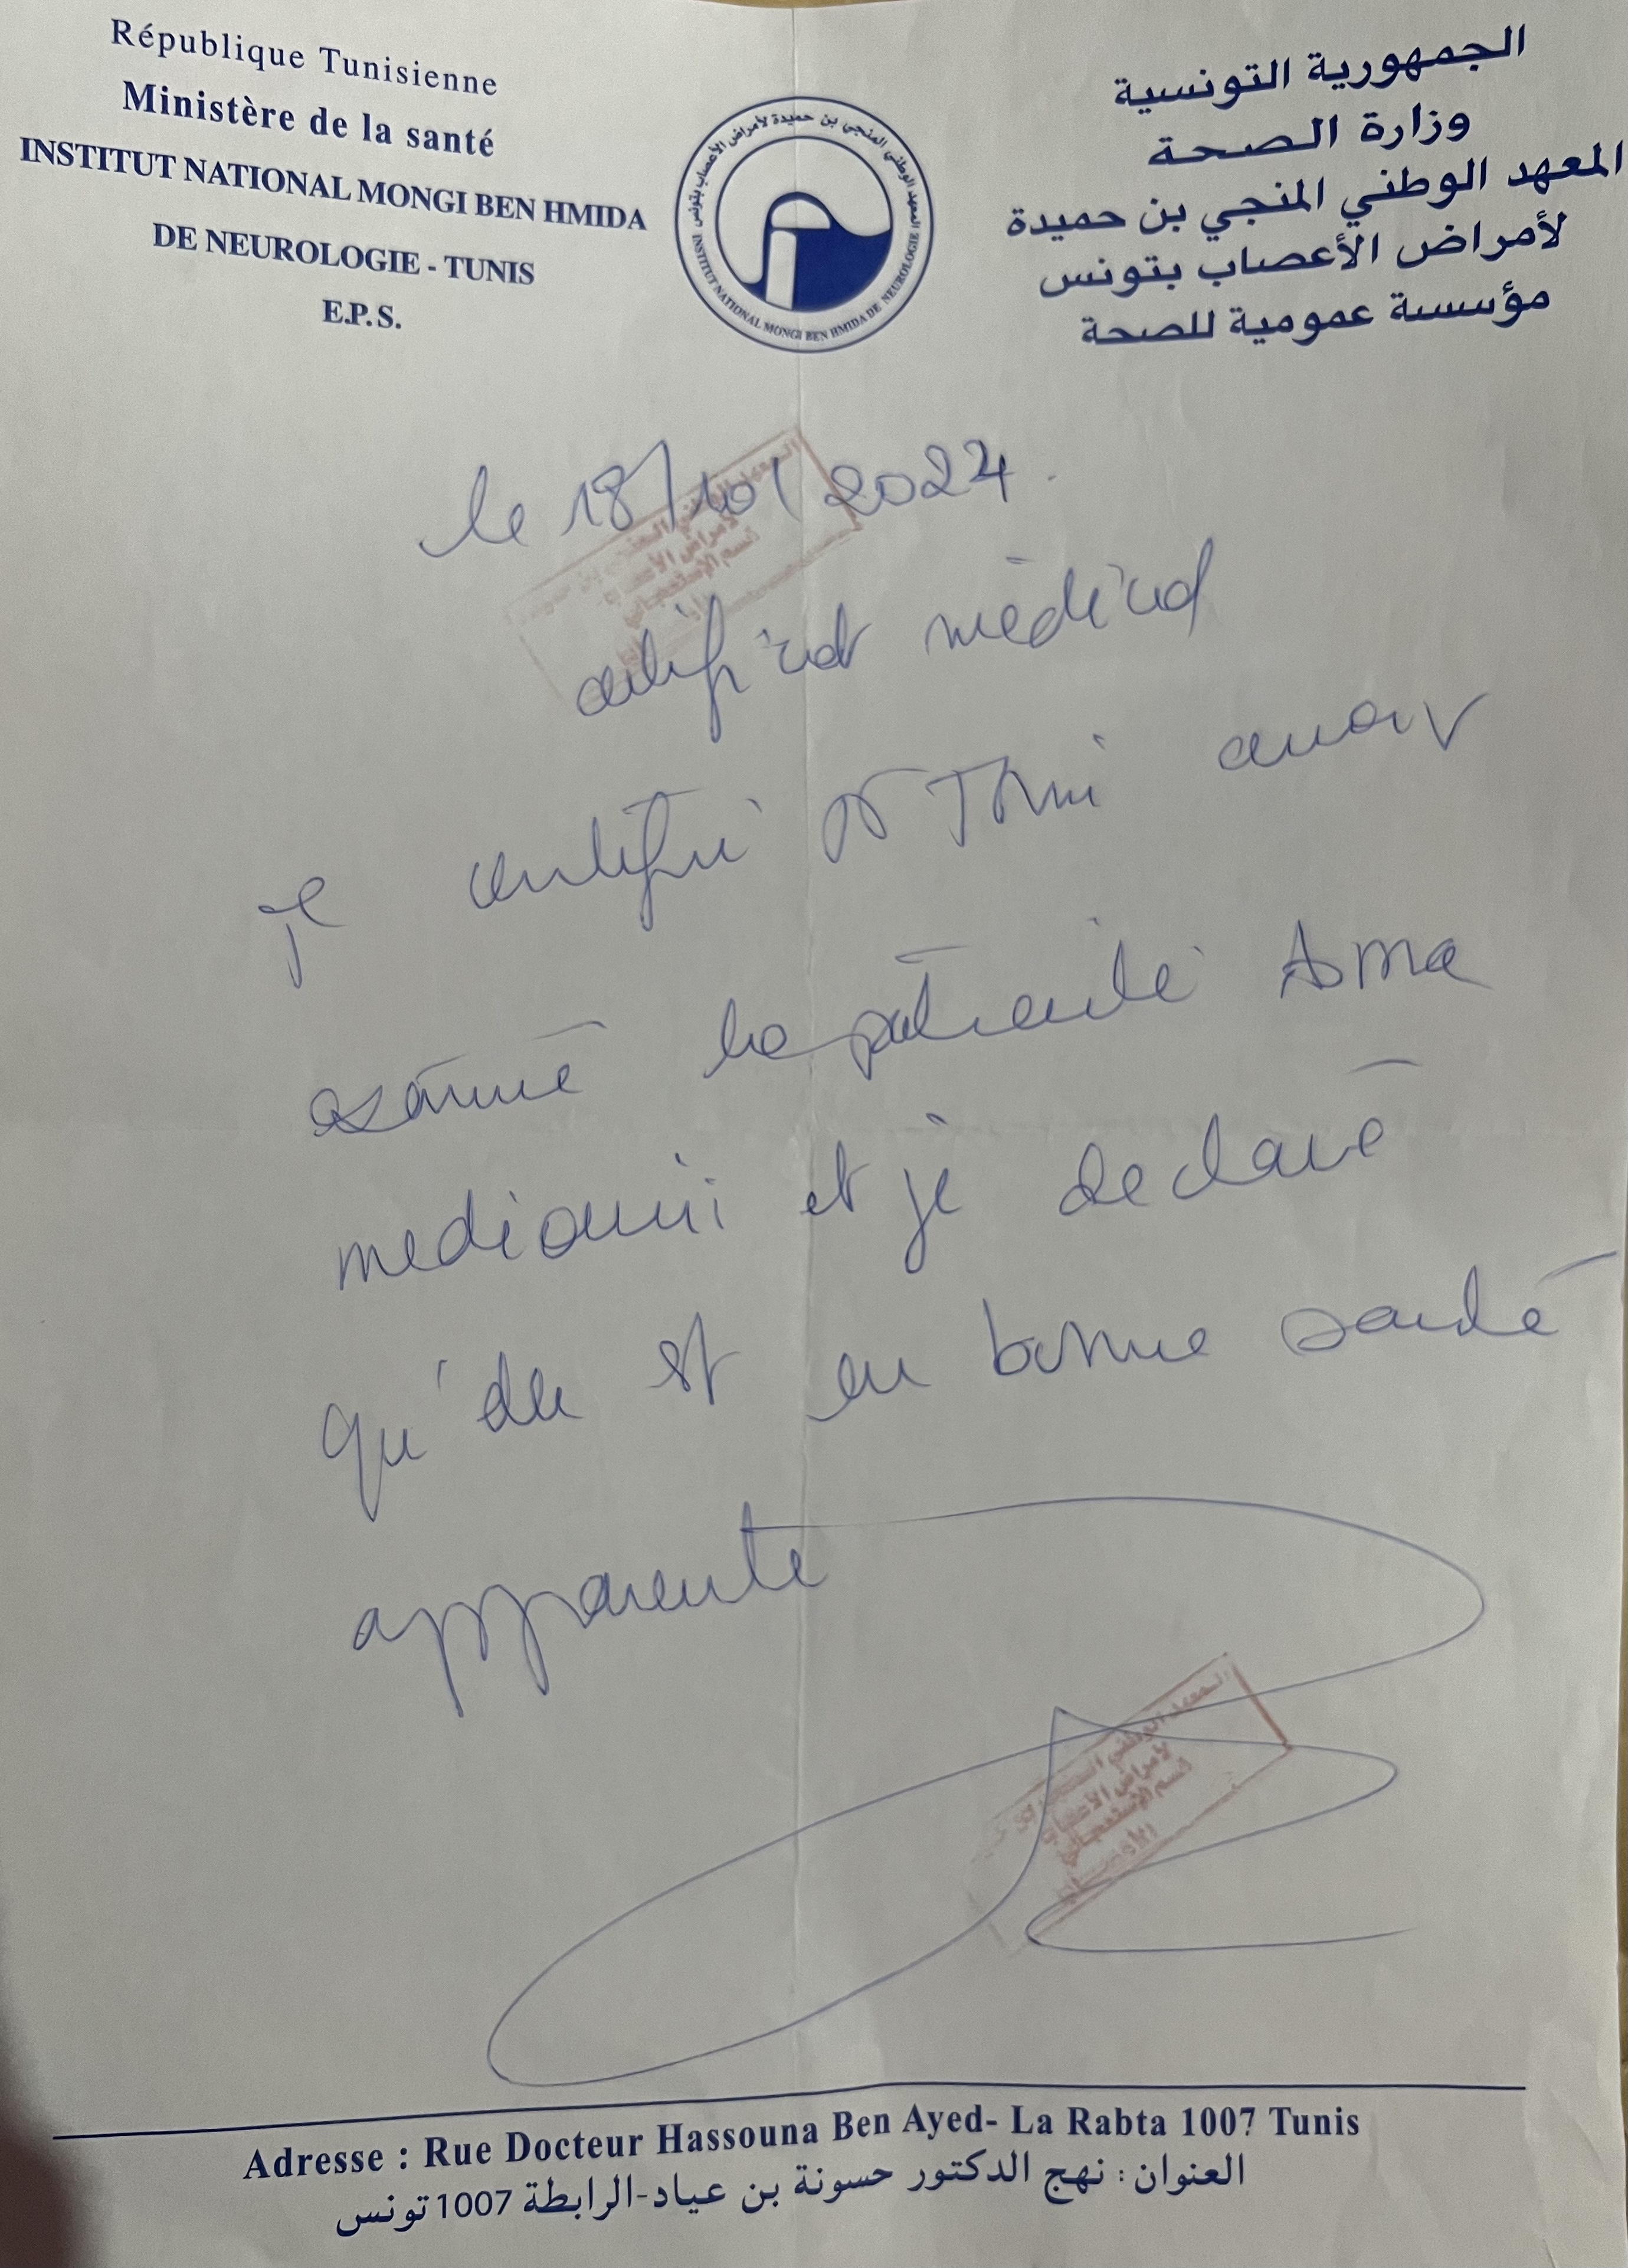 République Tunisienne
Ministère de la santé
INSTITUT NATIONAL MONGI BEN HMIDA
DE NEUROLOGIE - TUNIS
E.P.S.
المعهد الوطني المنجي بن حميدة لأمراض الأعصاب بتونس
INSTITUT NATIONAL MONGI BEN HMIDA DE NEUROLOGIE
الجمهورية التونسية
وزارة الصحة
المعهد الوطني المنجي بن حميدة
لأمراض الأعصاب بتونس
مؤسسة عمومية للصحة
le 18/10/2024
certificat médical
je certifie Dr avoir
examiné la patiente Asma
mediouni et je declare
qu'elle est en bonne santé
apparente
المعهد الوطني
لأمراض الأعصاب
قسم الإستعجالي
Adresse : Rue Docteur Hassouna Ben Ayed- La Rabta 1007 Tunis
العنوان : نهج الدكتور حسونة بن عياد-الرابطة 1007 تونس